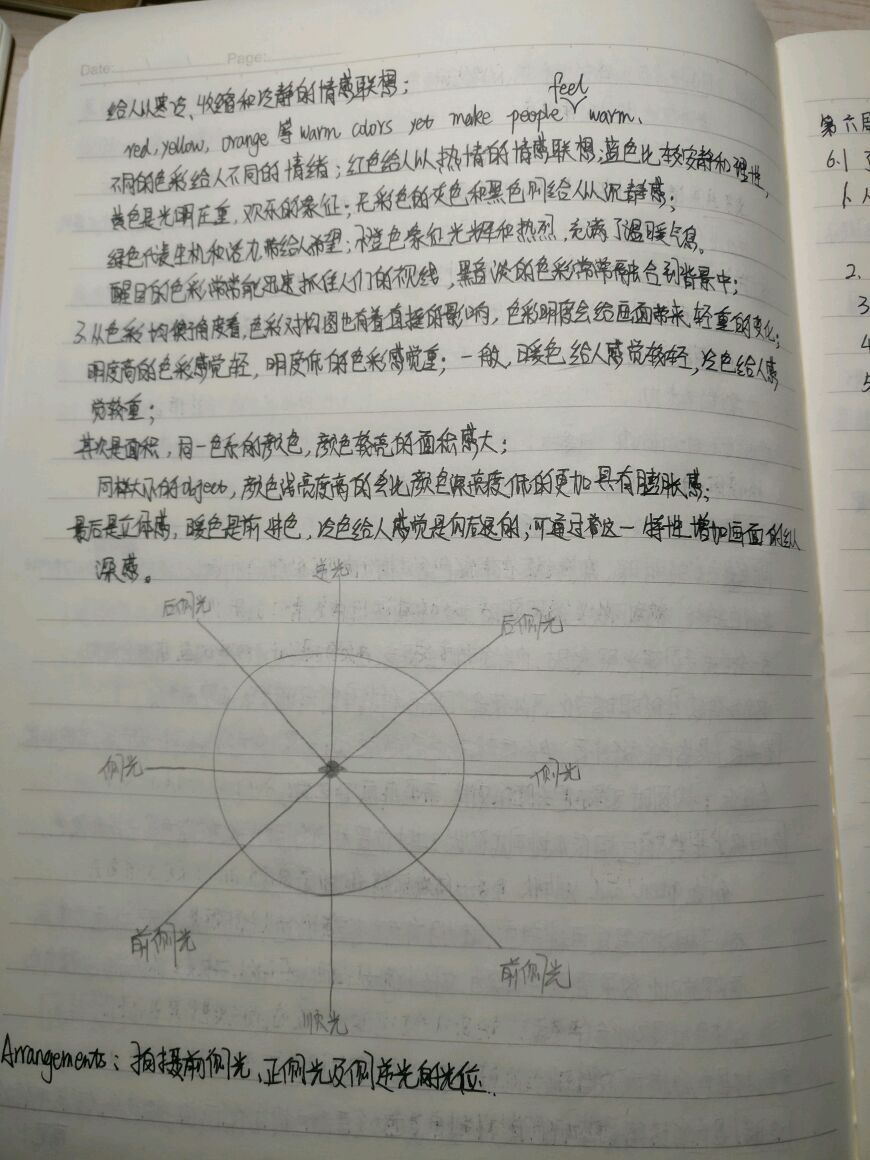 Date: / / Page:
给人以寒冷、收缩和冷静的情感联想；
feel
red, yellow, orange 等 warm colors yet make people warm.
不同的色彩给人不同的情绪；红色给人以热情的情感联想；蓝色比较安静和理性，
黄色是光明庄重，欢乐的象征；无彩色的灰色和黑色则给人以沉静感；
绿色代表生机和活力，带给人希望；橙色象征光辉和热烈，充满了温暖气息。
醒目的色彩常常能迅速抓住人们的视线，黑暗淡的色彩常常融合到背景中；
3.从色彩均衡角度看，色彩对构图也有着直接的影响，色彩明度会给画面带来轻重的变化；
明度高的色彩感觉轻，明度低的色彩感觉重；一般，暖色给人感觉较轻，冷色给人感
觉较重；
其次是面积，同一色系的颜色，颜色较亮的面积感大；
同样大小的object，颜色温亮度高的会比颜色深亮度低的更加具有膨胀感；
最后是立体感，暖色是前进色，冷色给人感觉是向后退的；可通过着这一特性增加画面的纵
深感。
逆光
后侧光
后侧光
侧光
侧光
前侧光
前侧光
顺光
Arrangements：拍摄前侧光、正侧光及侧逆光的光位.
第六周
6.1
1.
2.
3
4
5